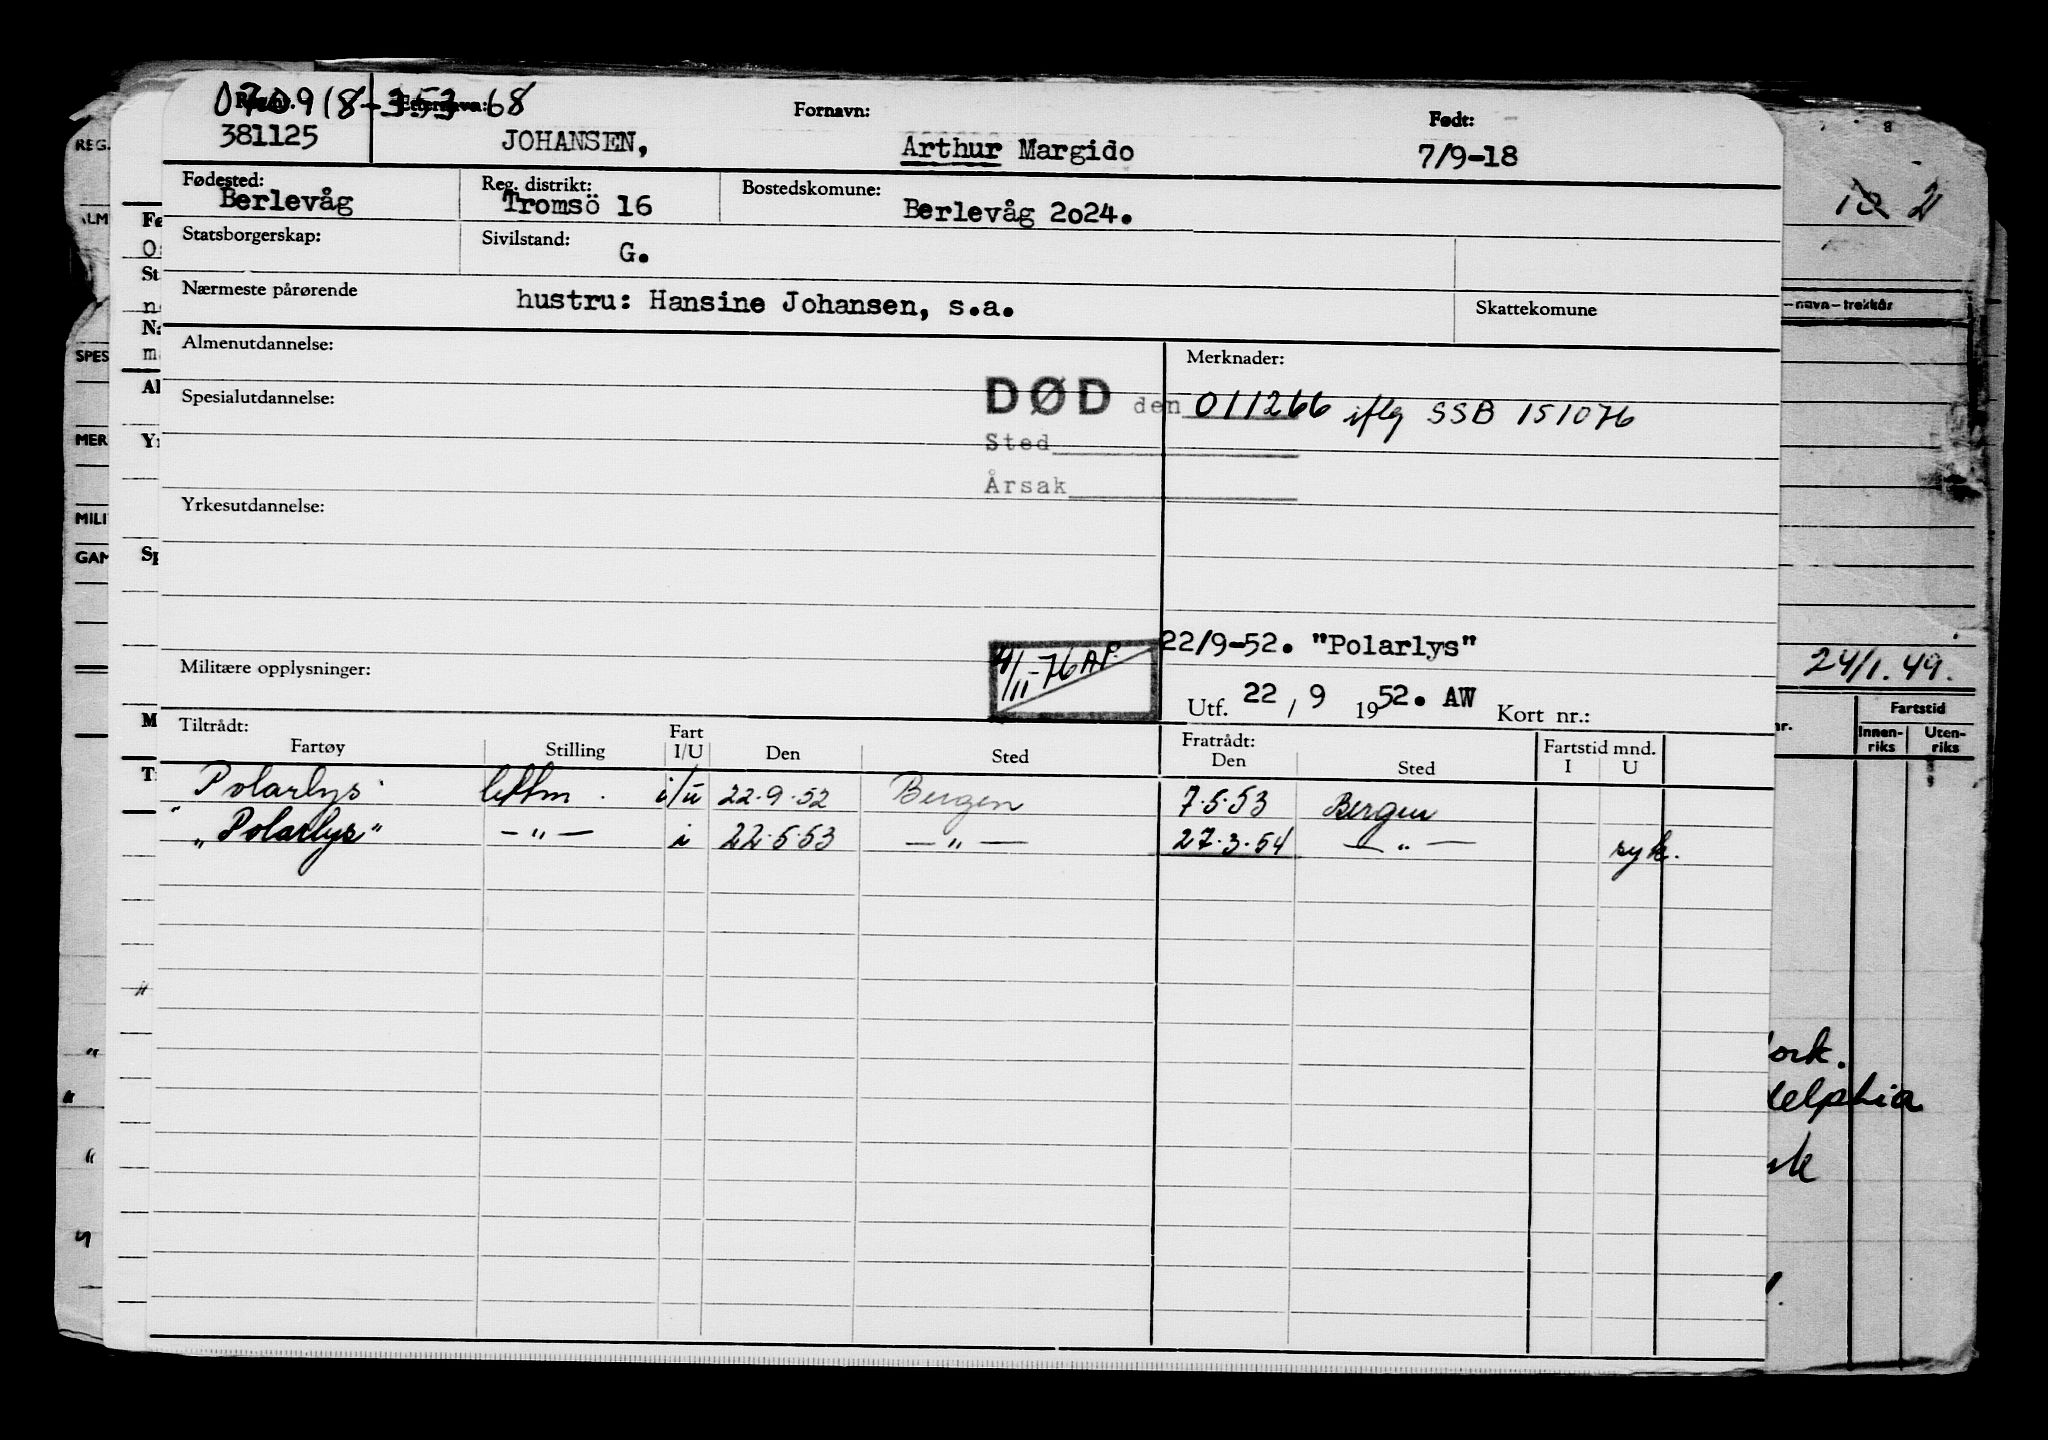 070918-353 68
Reg.nr. Etternavn: Fornavn: Født:
381125 JOHANSEN, Arthur Margido 7/9-18
Fødested: Reg. distrikt: Bostedskomune:
Berlevåg Tromsö 16 Berlevåg 2024.
Statsborgerskap: Sivilstand:
G.
Nærmeste pårørende hustru: Hansine Johansen, s.a. Skattekomune
Almenutdannelse: Merknader:
Spesialutdannelse: DØD den 011266 iflg SSB 151076
Sted
Årsak
Yrkesutdannelse:
22/9-52. "Polarlys"
Militære opplysninger: 4/11-76 AF
Utf. 22 / 9 1952. AW Kort nr.:
Tiltrådt: Fratrådt:
Fartøy Stilling Fart I/U Den Sted Den Sted Fartstid mnd. I U
Polarlys i/u 22.9.52 Bergen 7.5.53 Bergen
"Polarlys" — " — i 22.5.53 — " — 27.3.54 — " — syk.
REG.
ALM
SPES
MER
MILI
GAM
10 2
-navn-trekkår
24/1.49.
nr. Fartstid
Innen-riks Uten-riks
ork.
delphia